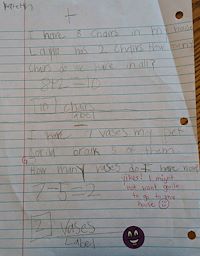 +
I have 8 chairs in my house
Layla has 2 chairs How many
chairs do we have in all?
8+2=10
10 chairs
label
I have 7 vases my
broke 5 of them.
How many vases do I have now
7-5=2
yikes! I might
not want
to go to your
house
2 vases
Label